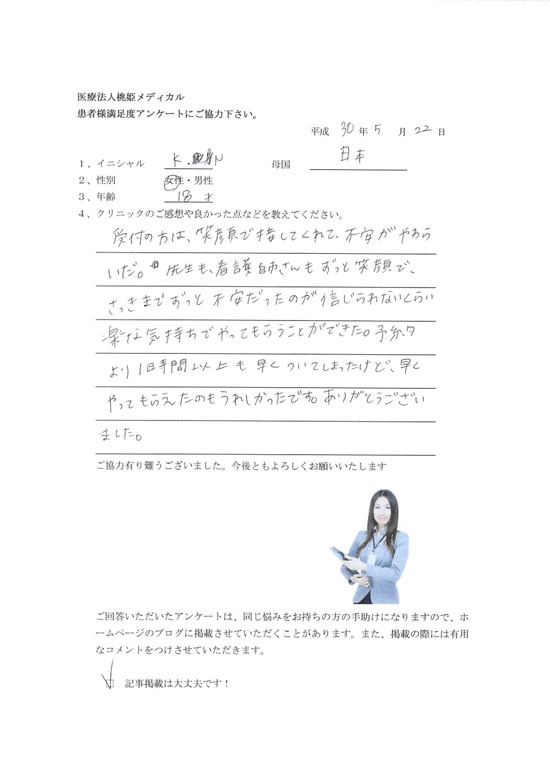 医療法人桃姫メディカル
患者様満足度アンケートにご協力下さい。
平成 30 年 5 月 22 日
1、イニシャル K.N 母国 日本
2、性別 女性・男性
3、年齢 18 才
4、クリニックのご感想や良かった点などを教えてください。
受付の方は、笑顔で接してくれて、不安がやわら
いだ。先生も、看護師さんもずっと笑顔で、
さっきまでずっと不安だったのが信じられないくらい
楽な気持ちでやってもらうことができた。予約
より1時間以上も早くついてしまったけど、早く
やってもらえたのもうれしかったです。ありがとうござい
ました。
ご協力有り難うございました。今後ともよろしくお願いいたします
ご回答いただいたアンケートは、同じ悩みをお持ちの方の手助けになりますので、ホ
ームページのブログに掲載させていただくことがあります。また、掲載の際には有用
なコメントをつけさせていただきます。
□ 記事掲載は大丈夫です！